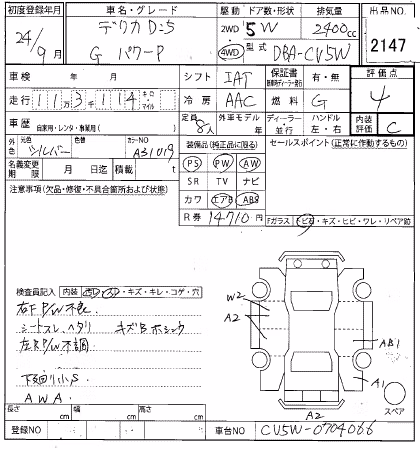 初度登録年月
車名・グレード
駆動 ドア数・形状 排気量
出品NO.
24/9月
デリカD:5
G パワーP
2WD
4WD
5 W
2400cc
型式 DBA-CV5W
2147
車検 年 月
シフト IAT
保証書 有・無
評価点
走行 11万3千114 キロ マイル
冷房 AAC
燃料 G
4
車歴 自家用・レンタ・事業用( )
定員 8人
外車モデル 年
ディーラー・並行
ハンドル 左・右
内装評価 C
外色 元色 シルバー 色替 カラーNO A31019
装備品(純正品に限る)
セールスポイント(正常に作動するもの)
名義変更期限 月 日迄 積載 t
PS PW AW
SR TV ナビ
カワ エアB ABS
R券 14710円
注意事項(欠品・修復・不具合箇所および状態)
Fガラス トビ石・キズ・ヒビ・ワレ・リペア跡
検査員記入 内装 ・キズ・キレ・コゲ・穴
右F P/W不良
シートスレ、ヘタリ キズBホシュウ
左R P/W不調
下回り小S
AWA
W2
A2
AB1
A1
A2
スペア
長さ cm 幅 cm 高さ cm
登録NO
車台NO CV5W-0704066